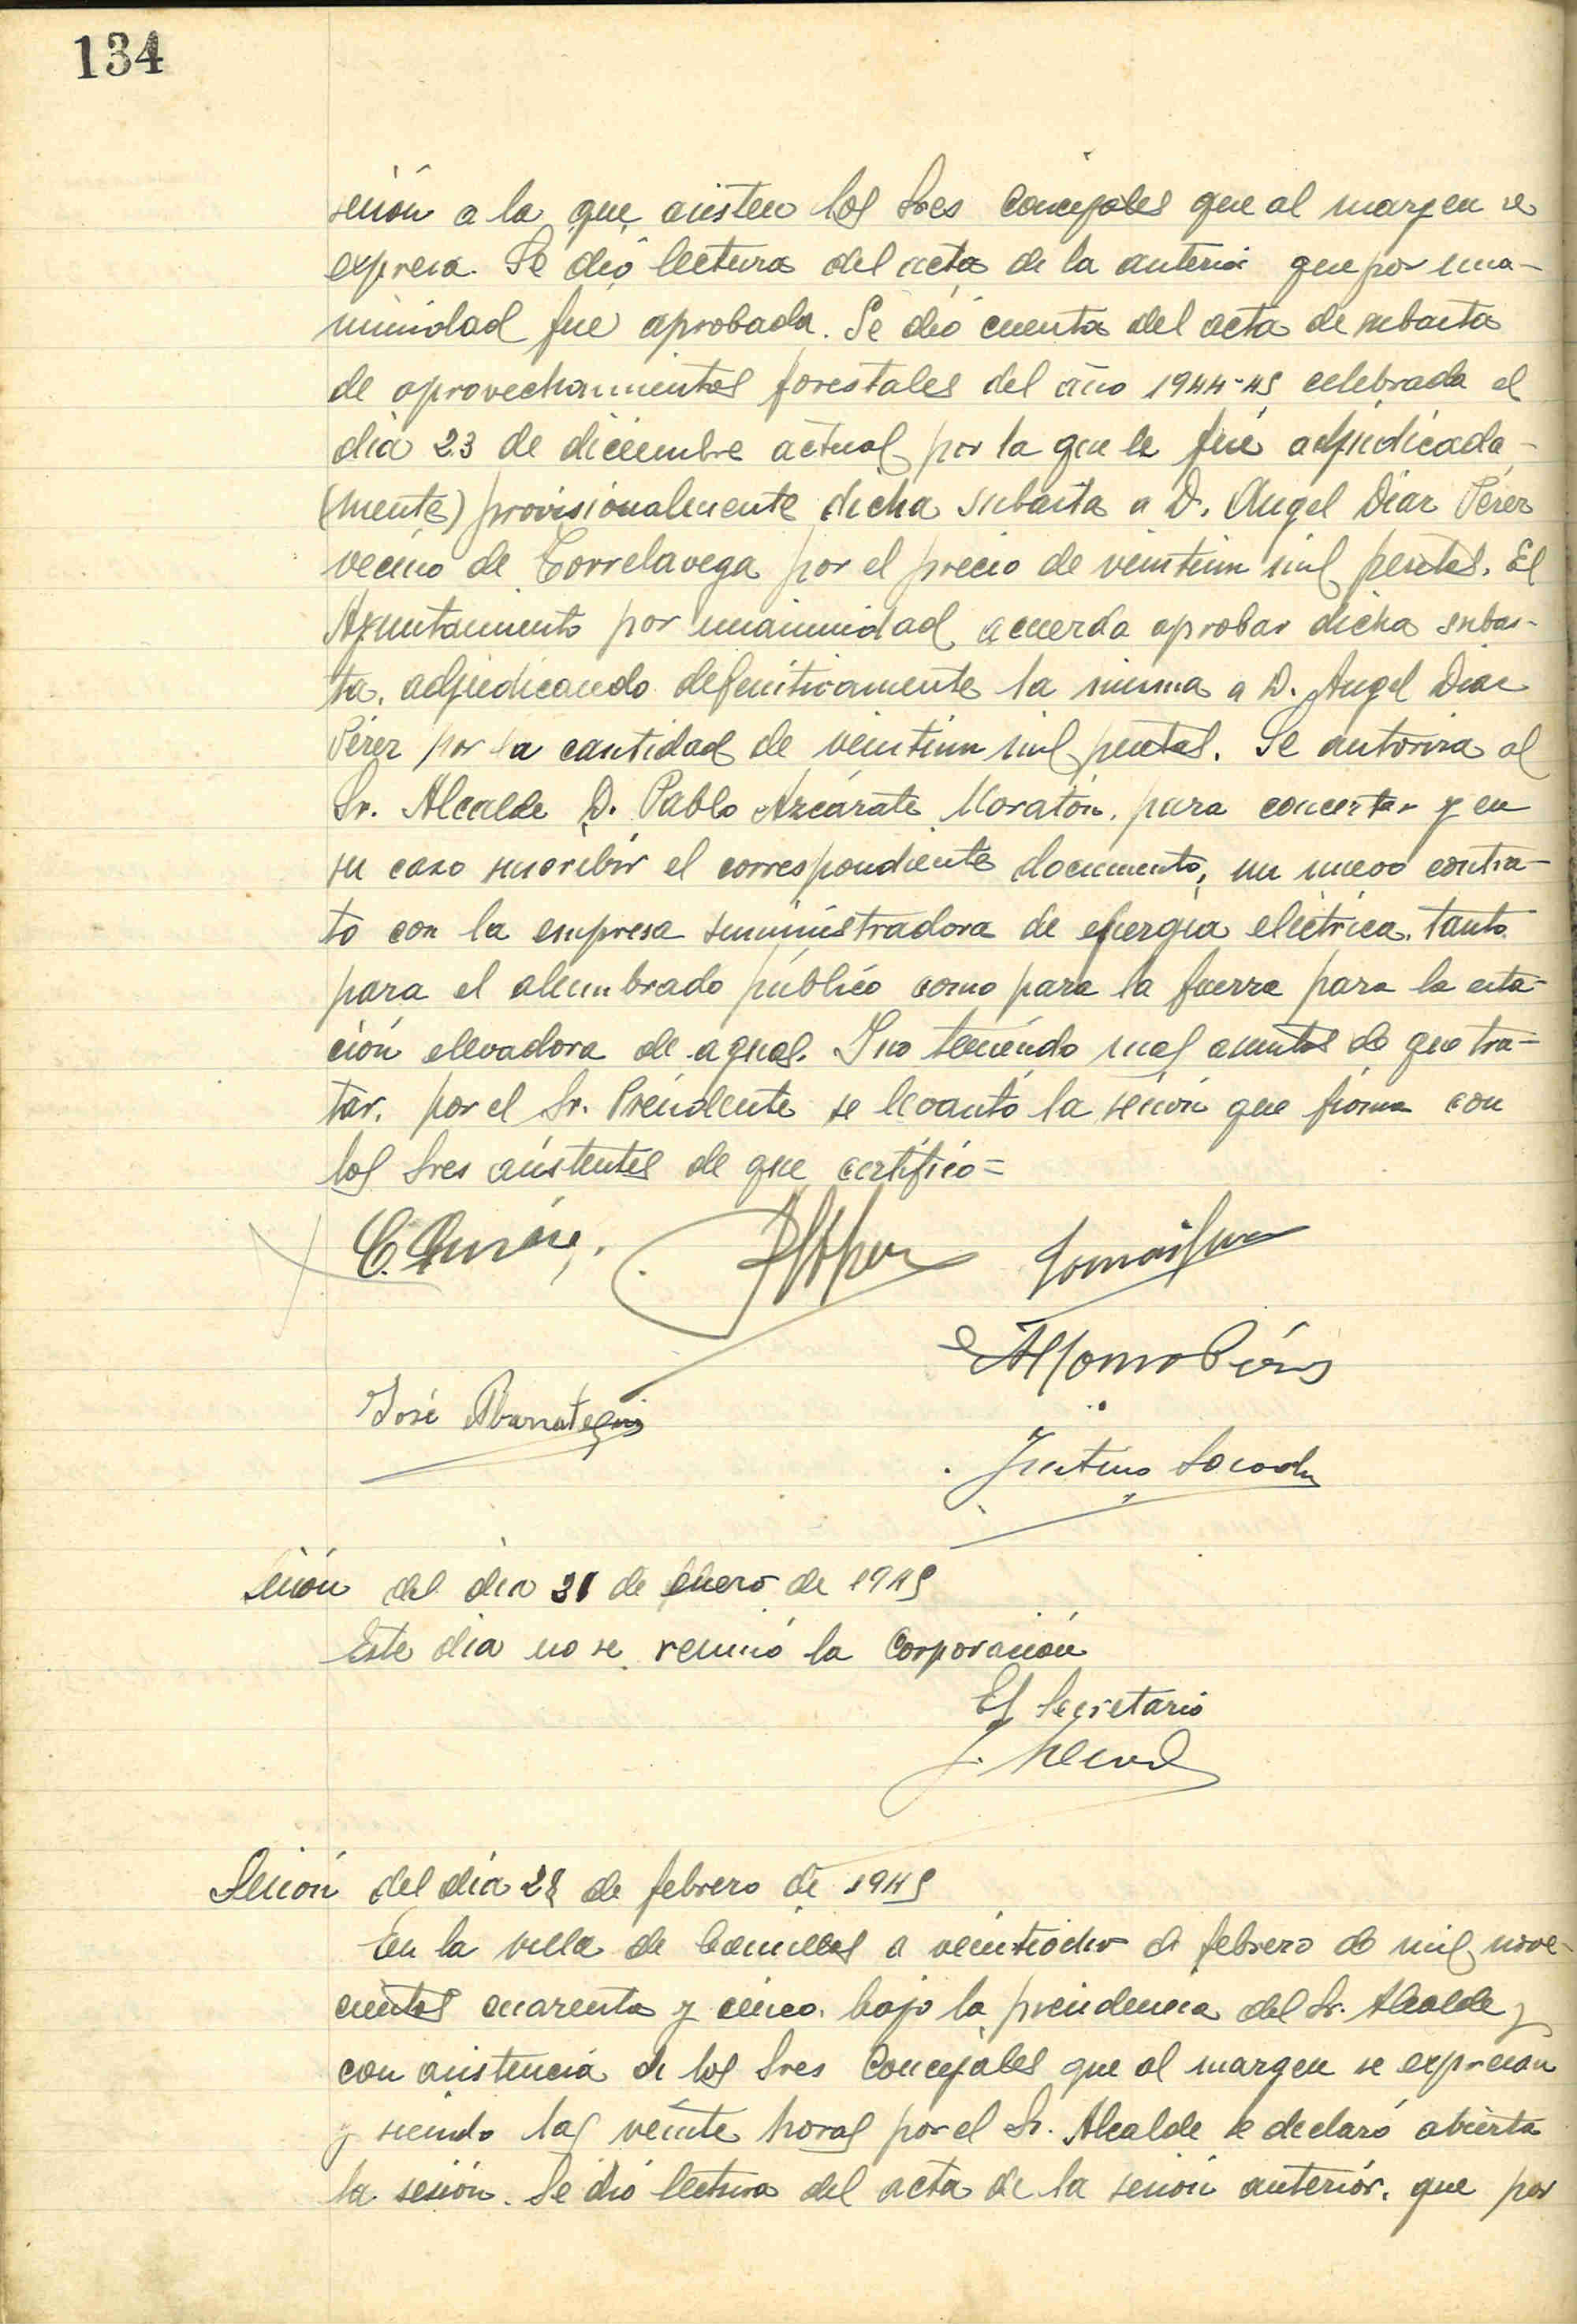 134
sesión a la que asisten los Sres Concejales que al margen se
expresa. Se dió lectura del acta de la anterior que por una-
nimidad fué aprobada. Se dió cuenta del acta de subasta
de aprovechamientos forestales del año 1944-45 celebrada el
día 23 de diciembre actual por la que le fué adjudicada-
(mente) provisionalmente dicha subasta a D. Angel Diaz Pérez
vecino de Torrelavega por el precio de veintiun mil pesetas. El
Ayuntamiento por unanimidad acuerda aprobar dicha subas-
ta, adjudicando definitivamente la misma a D. Angel Diaz
Pérez por la cantidad de veintiun mil pesetas. Se autoriza al
Sr. Alcalde D. Pablo Azcárate Moratón, para concertar y en
su caso suscribir el correspondiente documento, un nuevo contra-
to con la empresa suministradora de energía eléctrica, tanto
para el alumbrado público como para la fuerza para la esta-
ción elevadora de aguas. Y no teniendo mas asuntos de que tra-
tar, por el Sr. Presidente se levantó la sesión que firma con
los Sres asistentes de que certifico=
José
Justino
Sesión del día 31 de Enero de 1945
Este día no se reunió la Corporación
El Secretario
Sesión del día 28 de febrero de 1945
En la villa de Comillas a veintiocho de febrero de mil nove-
cientos cuarenta y cinco, bajo la presidencia del Sr. Alcalde y
con asistencia de los Sres Concejales que al margen se expresan
y siendo las veinte horas por el Sr. Alcalde se declaró abierta
la sesión. Se dió lectura del acta de la sesión anterior, que por